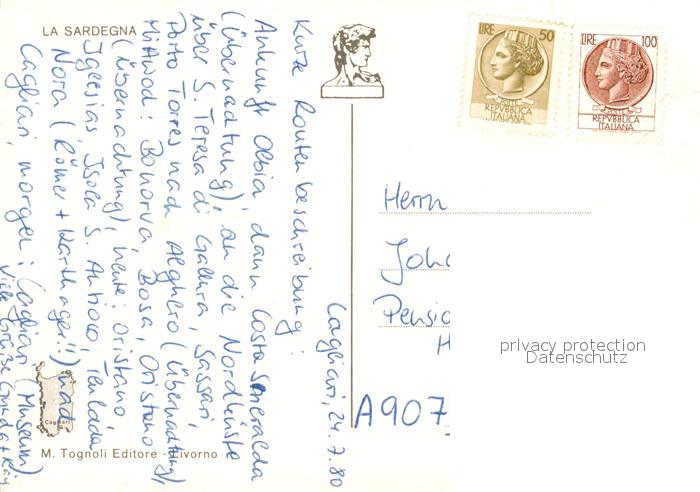 LA SARDEGNA
Cagliari, 24.7.80
Kurze Routenbeschreibung:
Ankunft Olbia, dann Costa Smeralda
(Übernachtung), an die Nordküste
über S. Teresa di Gallura, Sassari,
Porto Torres nach Alghero (Übernachtung),
Mittwoch: Bonorva, Bosa, Oristano
(Übernachtung), heute: Oristano,
Iglesias, Isola S. Antioco, Teulada
Nora (Römer + Karthager!!) nach
Cagliari, morgen: Cagliari (Museum)
Viele Grüße
Cagliari
M. Tognoli Editore - Livorno
LIRE 50
POSTE
REPVBBLICA
ITALIANA
LIRE 100
POSTE
REPVBBLICA
ITALIANA
Herrn
Joh
Pensio
H
A907
privacy protection
Datenschutz